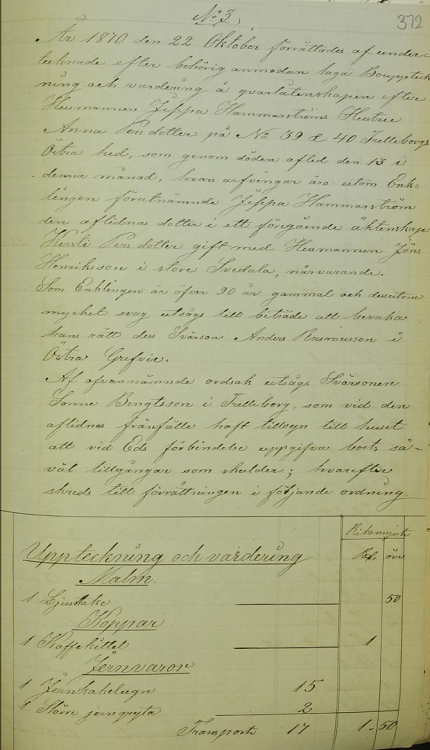 No 3.
372
År 1870 den 22 Oktober förrättades af under-
tecknade efter behörig anmodan laga Bouppteck
ning och värdering å qvarlåtenskapen efter
Husmannen Jeppa Hammarströms Hustru
Anna Persdotter på No 39 & 40 Trelleborgs
Östra hed, som genom döden afled den 13 i
denna månad, hvars arfvingar äro utom Enk-
lingen förutnämnde Jeppa Hammarström
den aflidnas dotter i ett föregående äktenskap
Kersti Persdotter gift med Husmannen Jöns
Henriksson i store Svedala, närvarande.
Som Enklingen är öfver 90 år gammal och dessutom
mycket svag utsågs till biträde att bevaka
hans rätt dess Svärson Anders Rasmusson i
Östra Grefvie.
Af ofvannämnde ordsak utsågs Svärsonen
Sonne Bengtsson i Trelleborg, som vid den
aflidnas frånfälle haft tillsyn till huset
att vid Eds förbindelse uppgifva boets så-
väl tillgångar som skulder; hvarefter
skreds till förrättningen i följande ordning
Riksmynt
Uppteckning och värdering Rdr öre
Malm.
1 Ljusstake 50
Koppar
1 Kaffekittel 1
Jernvaror
1 Jernkakelugn 15
1 Större jerngryta 2
Transport 17 1. 50